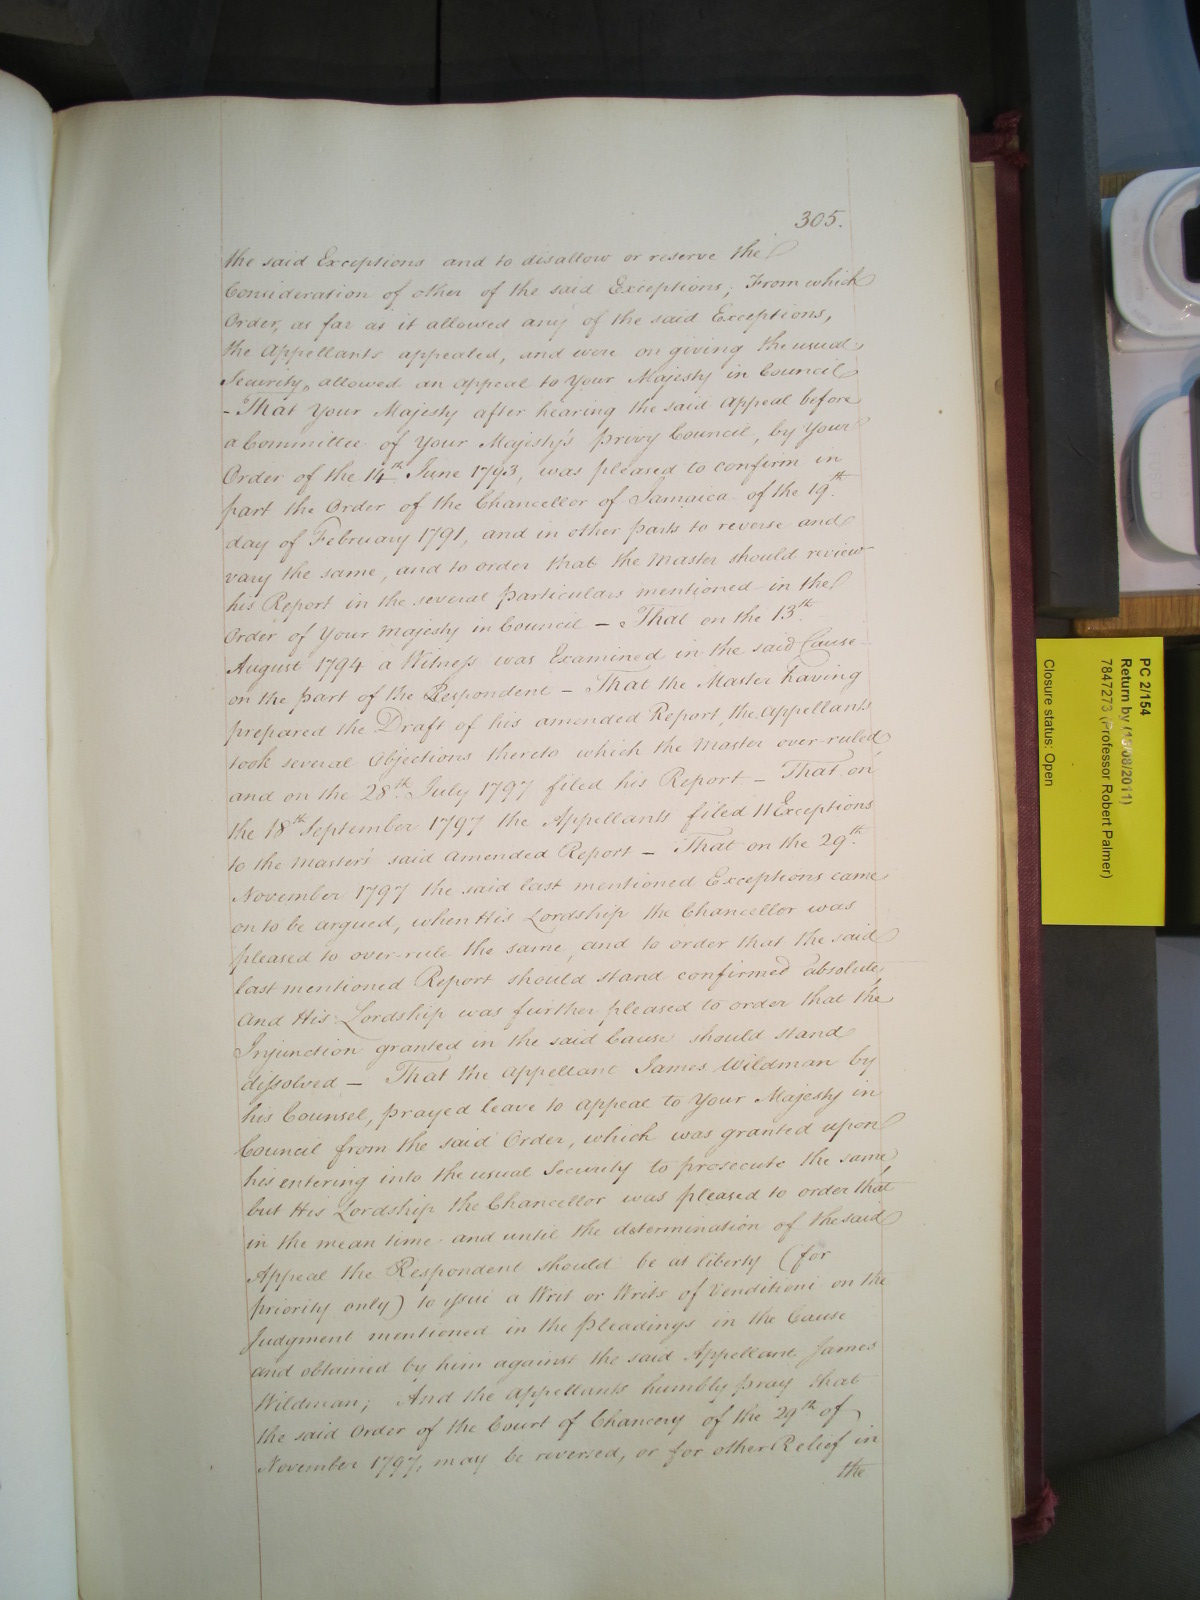 305.
the said Exceptions and to disallow or reserve the
Consideration of other of the said Exceptions; From which
Order, as far as it allowed any of the said Exceptions,
the Appellants appealed, and were on giving the usual
Security, allowed an appeal to Your Majesty in Council
- That Your Majesty after hearing the said Appeal before
a Committee of Your Majesty's Privy Council, by Your
Order of the 14th June 1793, was pleased to confirm in
part the Order of the Chancellor of Jamaica of the 19th
day of February 1791, and in other parts to reverse and
vary the same, and to order that the Master should review
his Report in the several particulars mentioned in the
Order of Your Majesty in Council – That on the 13th
August 1794 a Witness was Examined in the said Cause
on the part of the Respondent – That the Master having
prepared the Draft of his amended Report, the Appellants
took several Objections thereto which the Master over-ruled
and on the 28th July 1797 filed his Report – That on
the 18th September 1797 the Appellants filed 11 Exceptions
to the Master's said amended Report – That on the 29th
November 1797 the said last mentioned Exceptions came
on to be argued, when His Lordship the Chancellor was
pleased to over-rule the same, and to order that the said
last mentioned Report should stand confirmed absolute,
and His Lordship was further pleased to order that the
Injunction granted in the said Cause should stand
dissolved – That the Appellant James Wildman by
his Counsel, prayed leave to appeal to Your Majesty in
Council from the said Order, which was granted upon
his entering into the usual Security to prosecute the same
but His Lordship the Chancellor was pleased to order that
in the mean time and until the determination of the said
Appeal the Respondent should be at liberty (for
priority only) to issue a Writ or Writs of Venditioni on the
Judgment mentioned in the Pleadings in the Cause
and obtained by him against the said Appellant James
Wildman; And the Appellants humbly pray that
the said Order of the Court of Chancery of the 29th of
November 1797, may be reversed, or for other Relief in
the
PC 2/154
Return by (13/08/2011)
7847273 (Professor Robert Palmer)
Closure status: Open